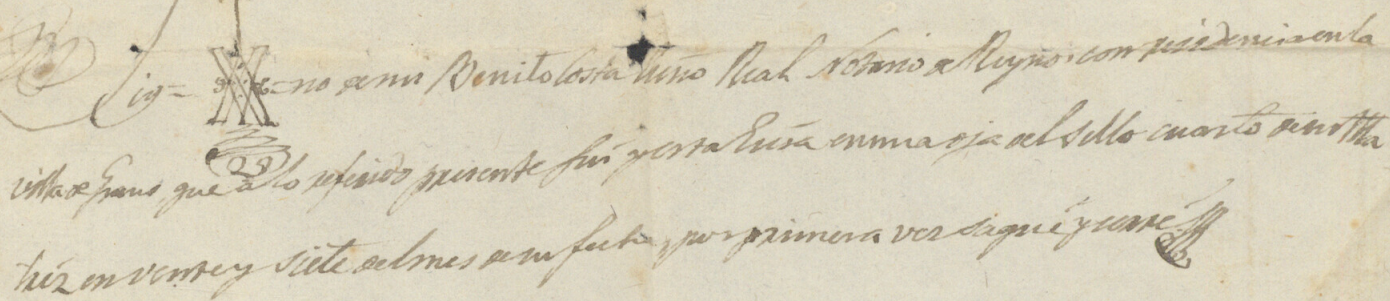 Sig= =no de mi Benito Costa Essno Real Notario de Reynos con residencia en la
villa de Graus, que a lo referido presente fuí y esta Essra en una oja del sello cuarto de notta Ma
triz en veinte y siete del mes de su fecha, por primera vez saqué y cerré